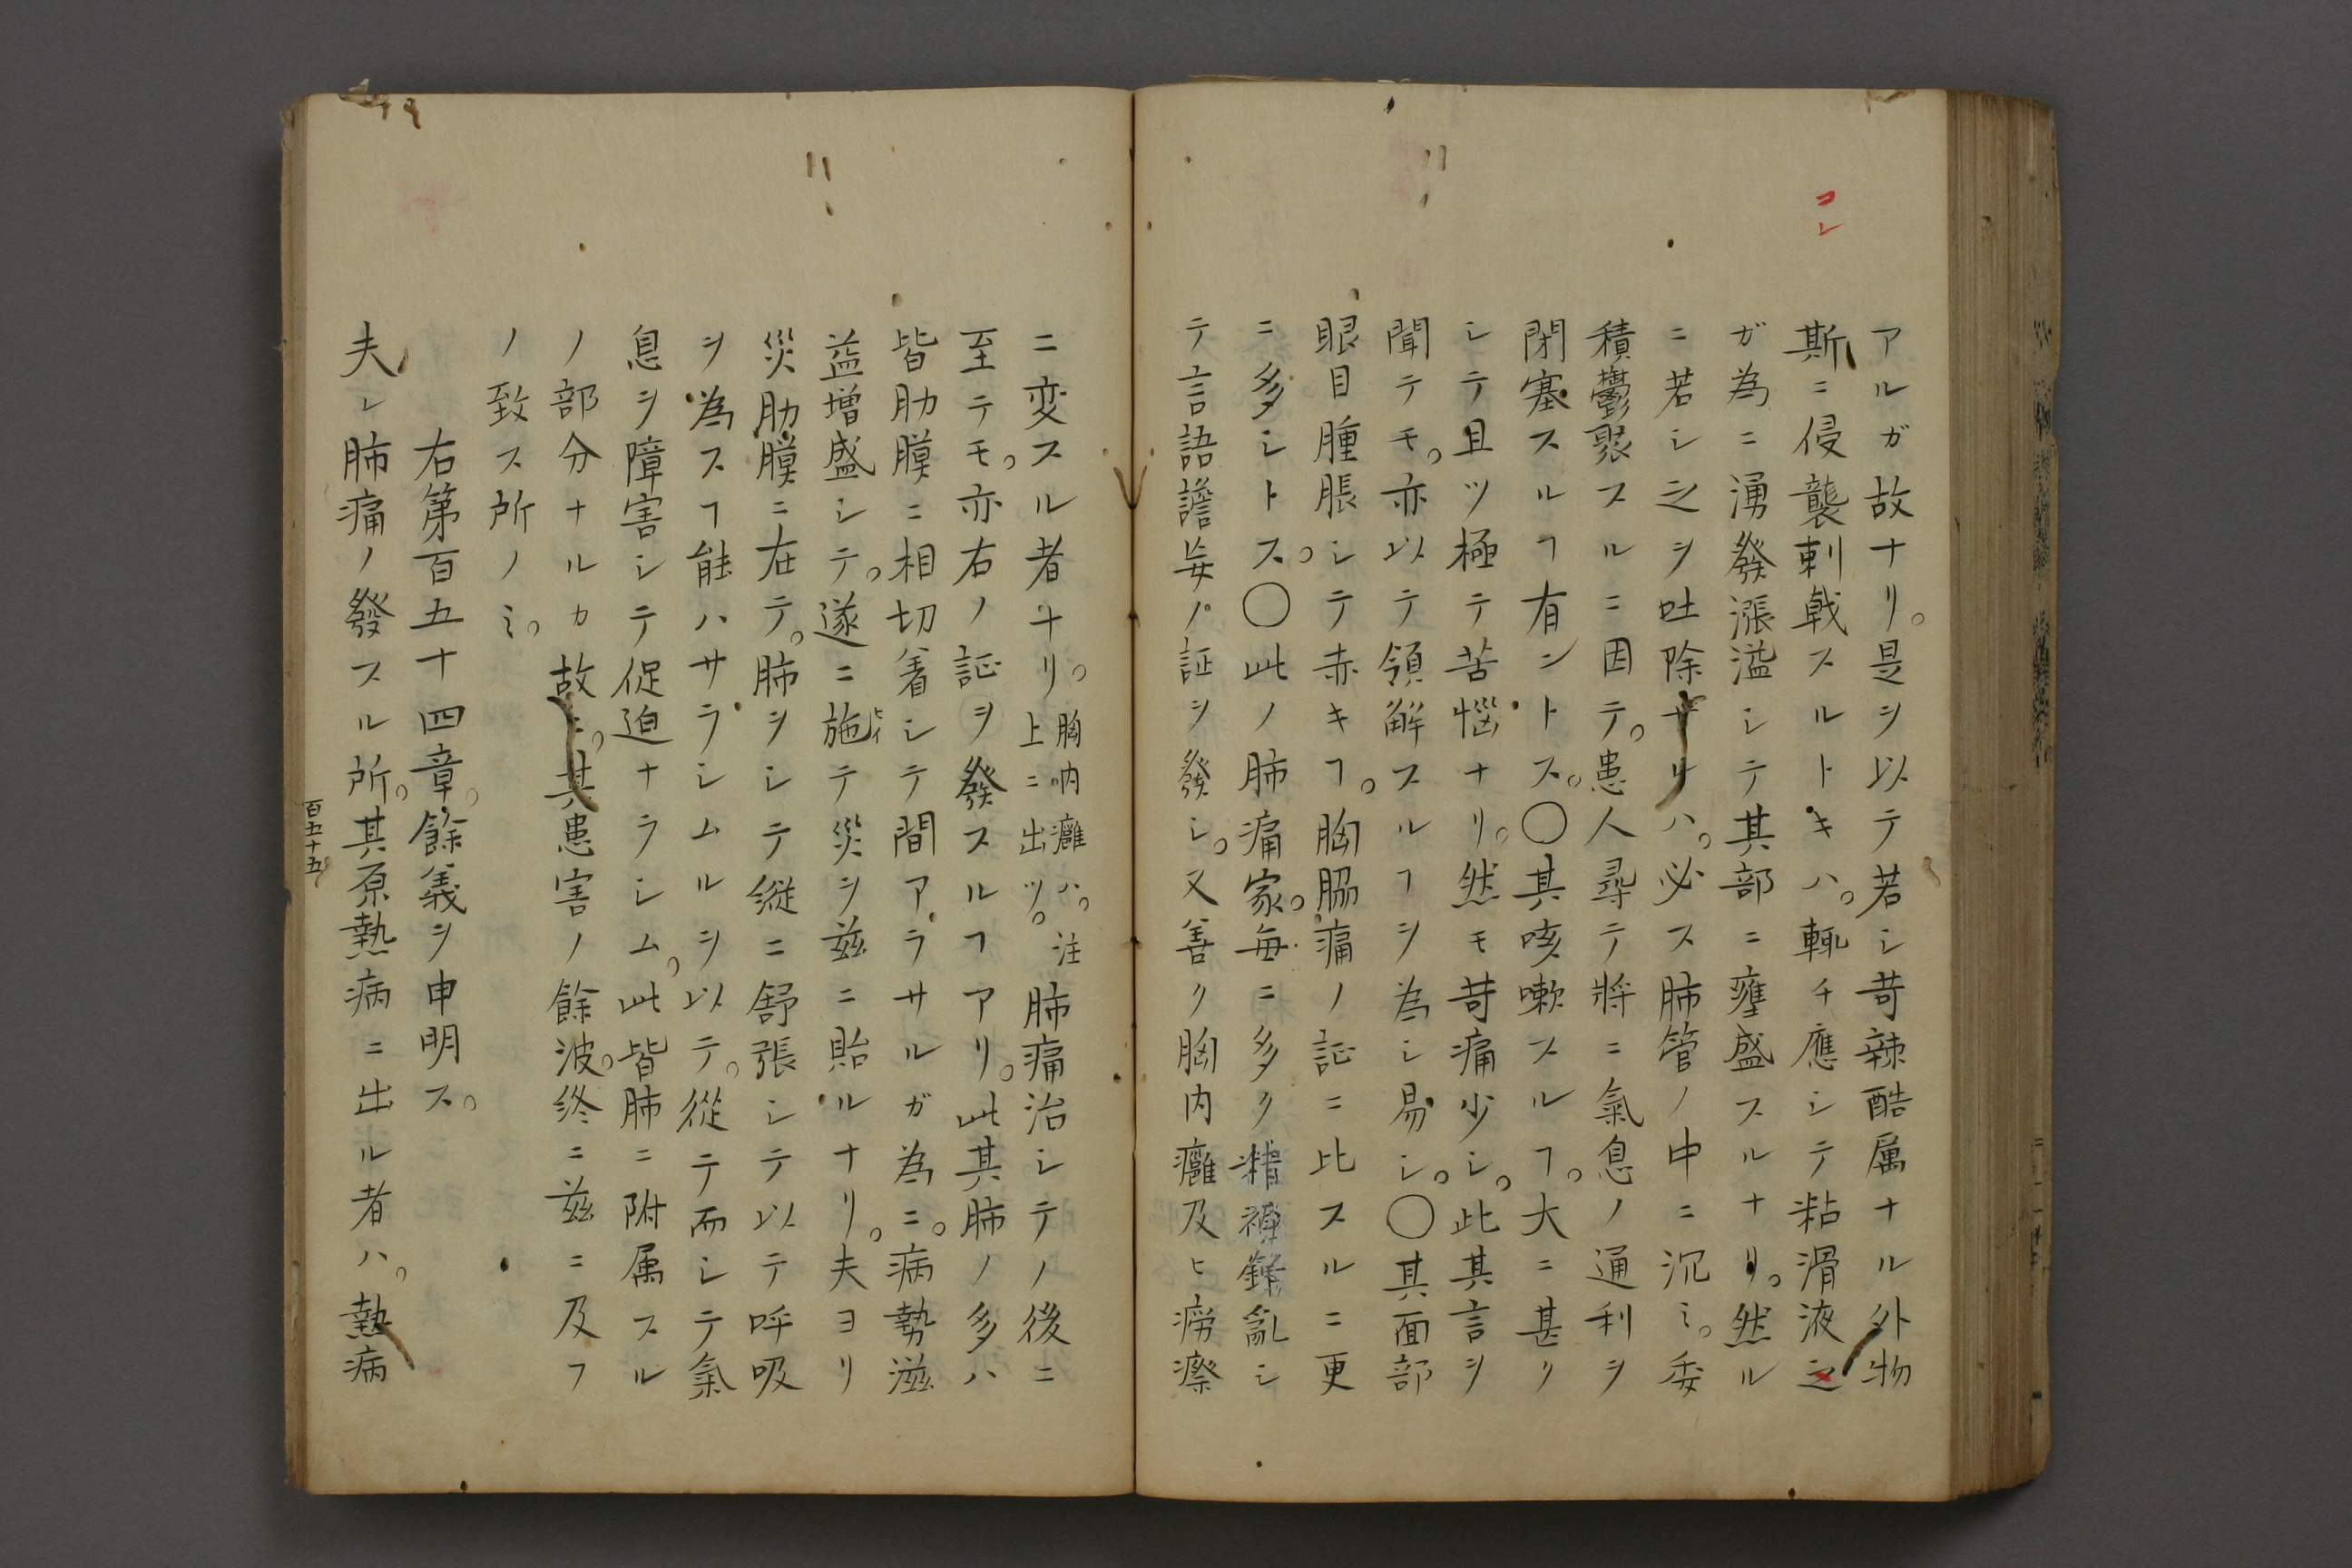 コレ
アルガ故ナリ。是ヲ以テ若シ苛辣酷属ナル外物
斯ニ侵襲刺戟スルトキハ。輙チ應シテ粘滑液之
ガ為ニ湧發漲溢シテ其部ニ壅盛スルナリ。然ル
ニ若シ之ヲ吐除サレハ。必ス肺管ノ中ニ沉ミ。委
積鬱聚スルニ因テ。患人尋テ将ニ氣息ノ通利ヲ
閉塞スルヿ有ントス。〇其咳嗽スルヿ。大ニ甚リ
シテ且ツ極テ苦惱ナリ。然モ苛痛少シ。此其言ヲ
聞テモ。亦以テ領解スルヿヲ為シ易シ。〇其面部
眼目腫脹シテ赤キヿ。胸脇痛ノ証ニ比スルニ更
ニ多シトス。〇此ノ肺痛家。毎ニ多ク精神錯亂シ
テ言語譫妄ノ証ヲ發シ。又善ク胸内癰及ヒ癆瘵
ニ変スル者ナリ。胸内癰ハ。注上ニ出ツ。肺痛治シテノ後ニ
至テモ。亦右ノ証ヲ發スルヿアリ。此其肺ノ多ハ
皆肋膜ニ相切着シテ間アラサルガ為ニ。病勢滋
益増盛シテ。遂ニ施テ災ヲ茲ニ貽ルナリ。夫ヨリ
災肋膜ニ在テ。肺ヲシテ縦ニ舒張シテ以テ呼吸
ヲ為スヿ能ハサラシムルヲ以テ。從テ而シテ氣
息ヲ障害シテ促迫ナラシム。此皆肺ニ附属スル
ノ部分ナルカ故ニ。其患害ノ餘波。終ニ茲ニ及フ
ノ致ス所ノミ。
右第百五十四章。餘義ヲ申明ス。
夫レ肺痛ノ發スル所。其原熱病ニ出ル者ハ。熱病
百五十五